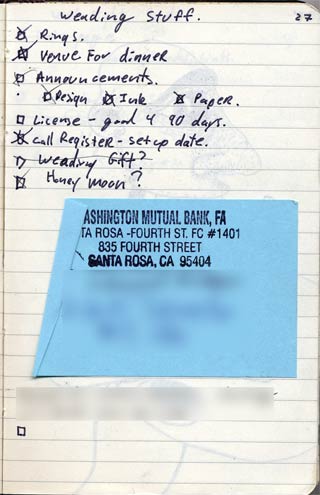 Weading Stuff. 27
Rings.
Venue For dinner
Announcements.
Design Ink Paper.
License - good 4 90 days.
Call Register - setup date.
Weading Gift?
Honey moon?
ASHINGTON MUTUAL BANK, FA
TA ROSA -FOURTH ST. FC #1401
835 FOURTH STREET
SANTA ROSA, CA 95404